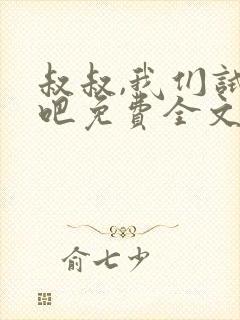 叔叔,我们试
吧免费全文
俞七少